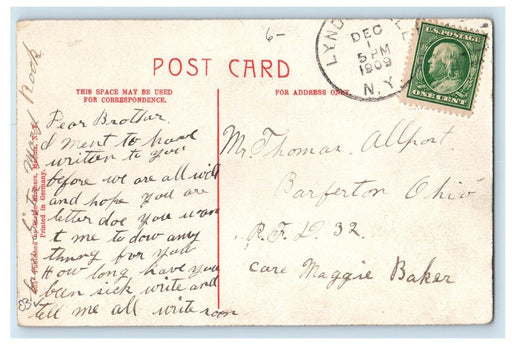 6-
POST CARD
THIS SPACE MAY BE USED
FOR CORRESPONDENCE.
FOR ADDRESS ONLY
LYND
DEC
1
5 PM
1909
N.Y.
U.S. POSTAGE
ONE CENT
Dear Brother.
I ment to have
written to you
before we are all well
and hope you are
letter doe you wan
t me to dow any
thing for you
How long have you
been sick write and
tell me all write soon
Mr Thomas Allport.
Barferton Ohio
R.F.D. 32.
care Maggie Baker
Printed in Germany.